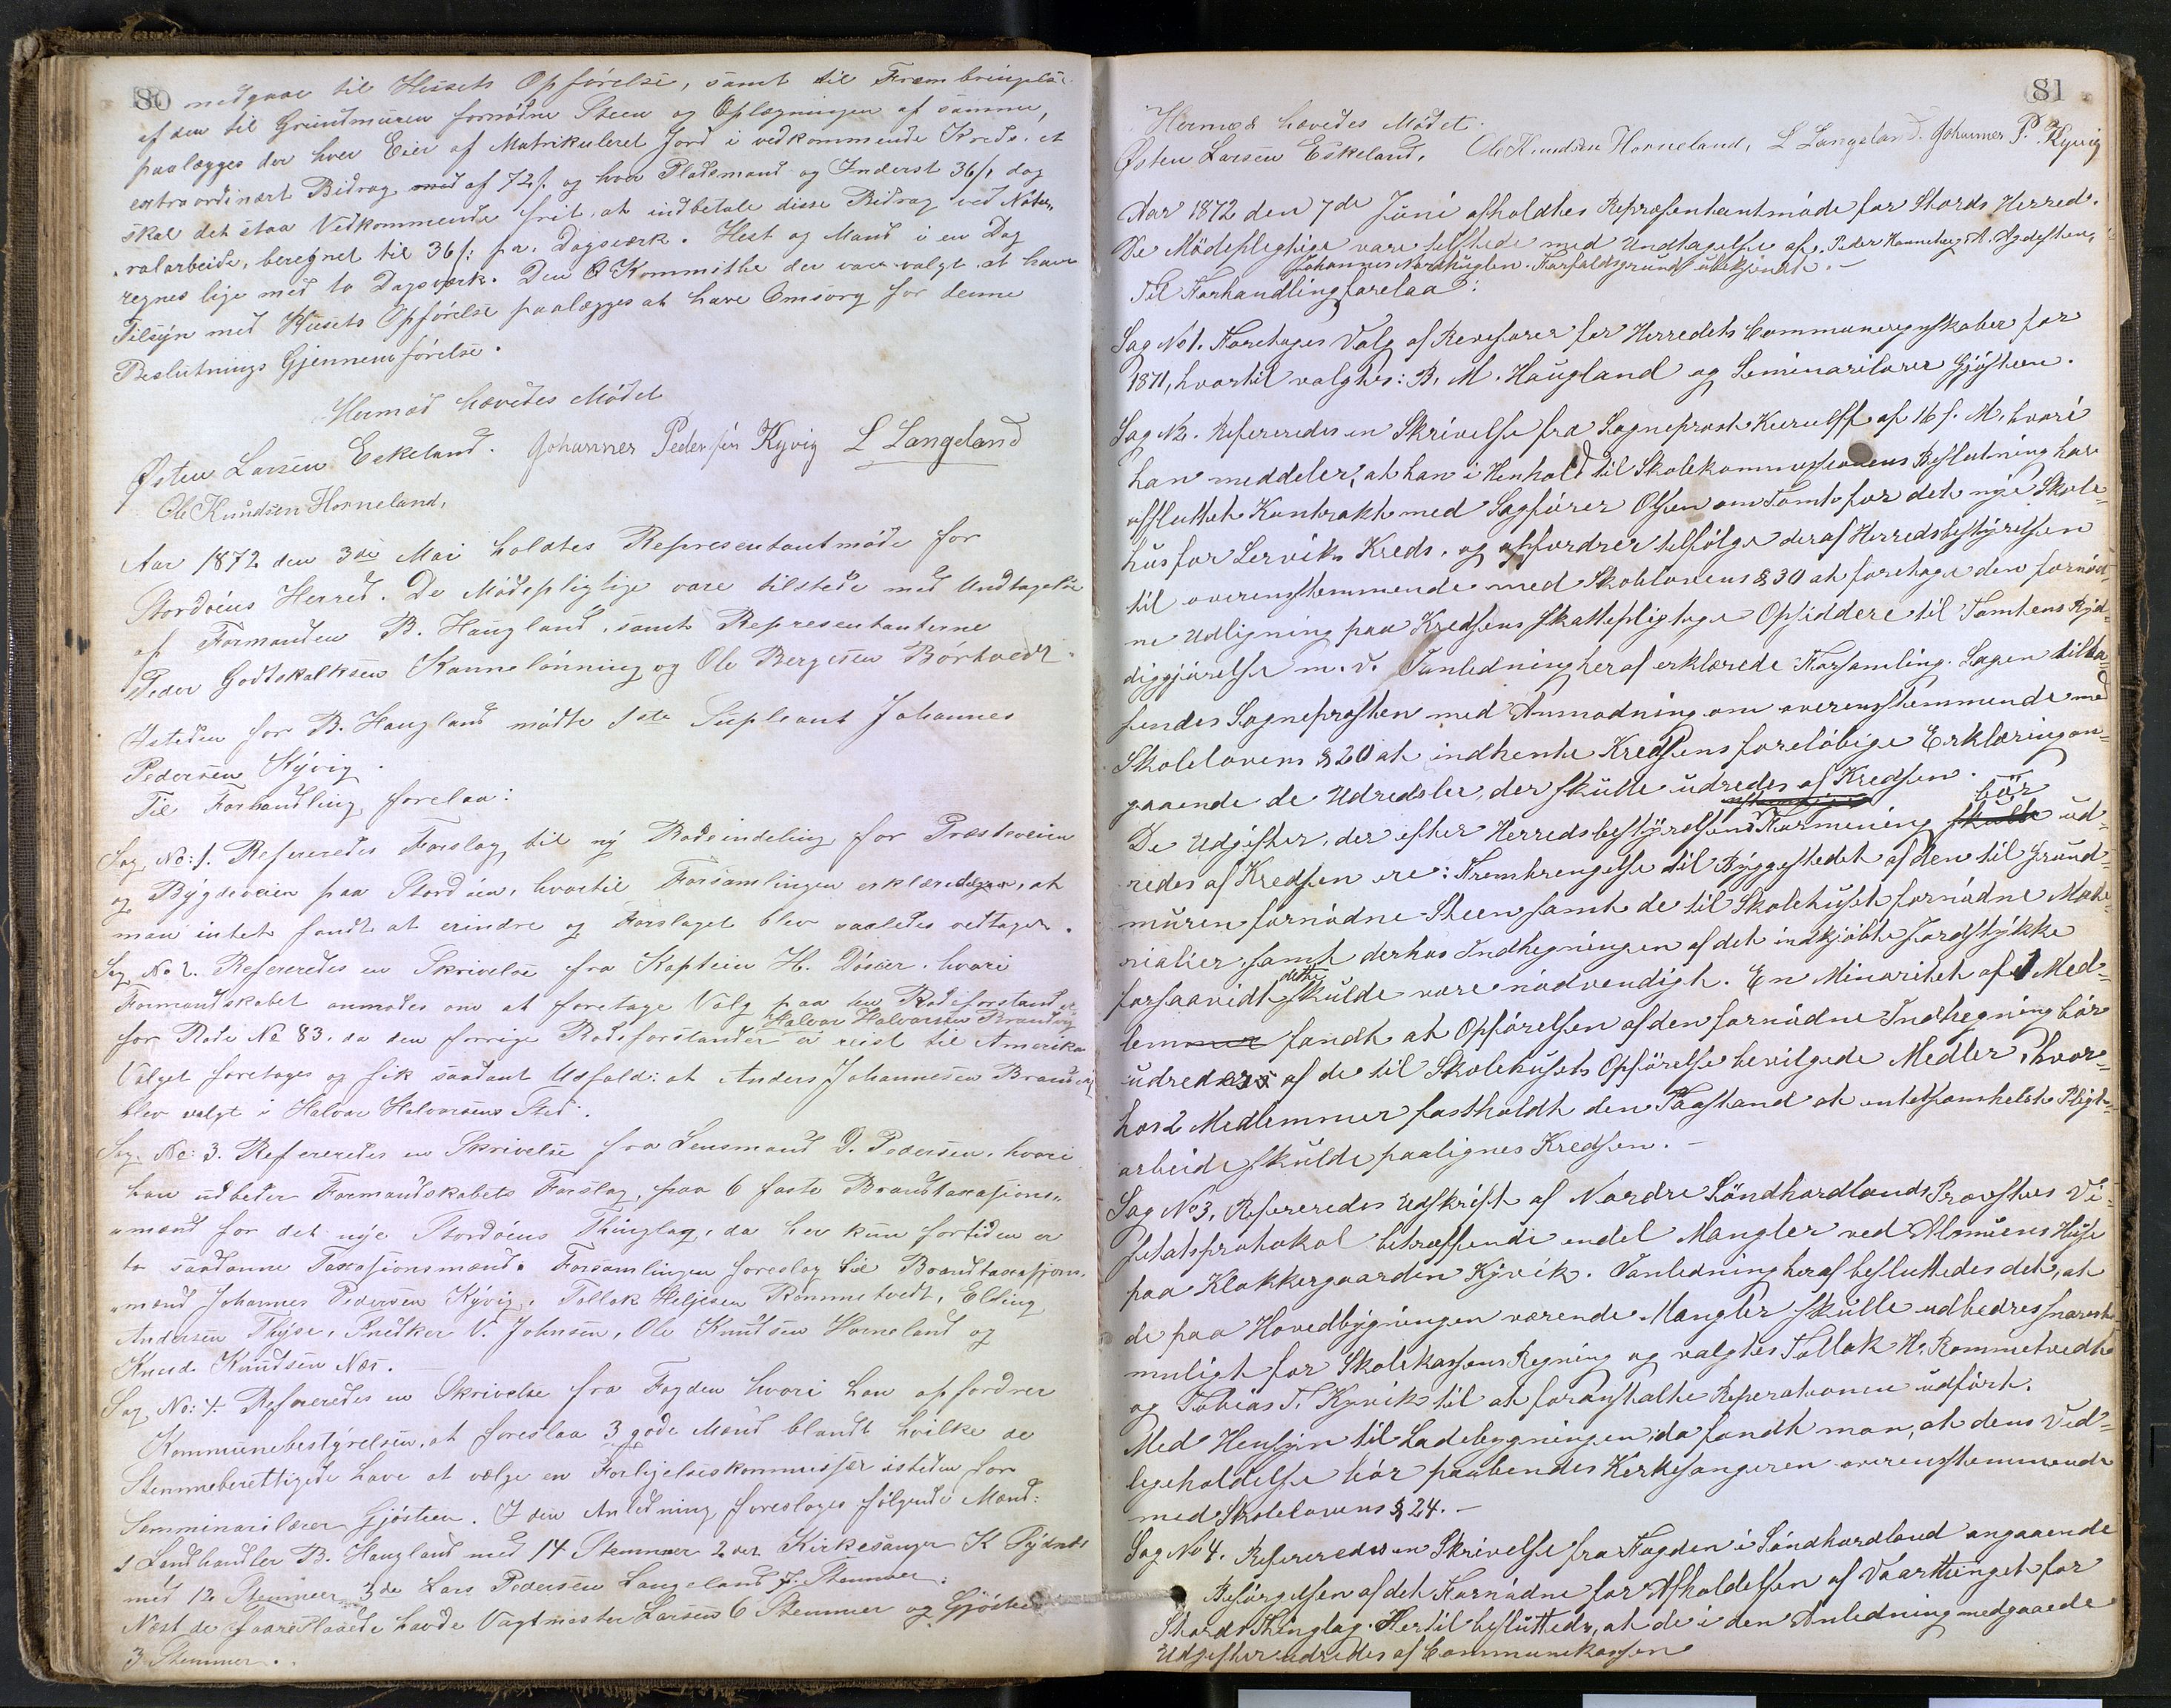 80
nedgaae til Husets Opførelse, samt til Frembringelse
af den til Grundmuren fornødne Steen og Oplægningen af samme,
paalægges der hver Eier af Matrikuleret Jord i vedkommende Kreds et
extraordinært Bidrag med af 72 s. og hver Pladsmand og Inderst 36 s, dog
skal det staa Vedkommende frit, at indbetale disse Bidrag ved Natu„
„ralarbeide, beregnet til 36 s: pr. Dagsværk. Hest og Mand i en Dag
regnes lige med to Dagsværk. Den Kommithe der var valgt at have
Tilsyn med Husets Opførelse paalægges at have Omsorg for denne
Beslutnings Gjennemførelse.
Hermed hævedes Mødet
Østen Larsen Eskeland. Johannes Pedersen Kyvig L Langeland
Ole Knudsen Horneland,
Aar 1872 den 3de Mai holdtes Representantmøde for
Stordøens Herred. De Mødepligtige vare tilstede med Undtagelse
af Formanden B. Haugland, samt Representanterne
Peder Godtskalksen Kannelønning og Ole Bergesen Børtvedt.
Isteden for B. Haugland mødte 1ste Supleant Johannes
Pedersen Kyvig.
Til Forhandling forelaa:
Sag No: 1. Refereredes Forslag til ny Rodeindeling for Præsteveien
og Bygdeveien paa Stordøen, hvortil Forsamlingen erklærede, at
man intet fandt at erindre og Forslaget blev saaledes vedtaget.
Sag No 2. Refereredes en Skrivelse fra Kaptein H. Döscer. hvori
Formandskabet anmodes om at foretage Valg paa en Rodeforstander
for Rode No 83. da den forrige Rodeforstander Halvor Halvorsen Brandvig er reist til Amerika
Valget foretoges og fik saadant Udfald: at Anders Johannesen Brandvig
blev valgt i Halvor Halvorsens Sted.
Sag No: 3. Refereredes en Skrivelse fra Lensmand D. Pedersen, hvori
han udbeder Formandskabets Forslag, paa 6 faste Brandtaxasjons„
„mænd for det nye Stordøens Thinglag, da her kun fortiden er
to saadanne Taxasjonsmænd. Forsamlingen foreslog til Brandtaxasjons„
„mænd Johannes Pedersen Kyvig, Tollak Heljesen Rommetvedt, Elling
Andersen Thyse, Snedker V. Johnsen, Ole Knudsen Horneland og
Knud Knudsen Næs.
Sag No: 4. Refereredes en Skrivelse fra Fogden hvori han opfordrer
Kommunebestyrelsen, at foreslaa 3 gode Mænd blandt hvilke de
Stemmeberettigede have at vælge en Forligelseskommissær isteden for
Semminarilærer Gjøsteen. I den Anledning foresloges følgende Mænd:
1 Landhandler B. Haugland med 14 Stemmer 2den Kirkesanger K Rydnæs
med 12 Stemmer 3de Lars Pedersen Langeland 7. Stemmer.
Næst de foreslaaede havde Vagtmester Larsen 6 Stemmer og Gjøsteen
3 Stemmer.
81
Hermed hævedes Mødet.
Østen Larsen Eskeland, Ole Knudsen Horneland, L Langeland. Johannes P. Kyvig
Aar 1872 den 7de Juni afholdtes Repræsentantmøde for Stords Herred.
De Mødepligtige vare tilstede med Undtagelse af Peder Kannelønig, A. Agdesten,
Johannes Nordhuglen. Forfaldsgrund ubekjendt. –
Til Forhandling forelaa:
Sag No 1. Foretoges Valg af Revisorer for Herredets Communeregnskaber for
1871, hvortil valgtes: B. M. Haugland og Seminarilærer Gjøsteen.
Sag No 2. Refereredes en Skrivelse fra Sogneprest Kierulff af 16 f. M. hvori
han meddeler, at han i Henhold til Skolekommissionens Beslutning har
afsluttet Kontrakt med Sagfører Olsen om Tomt for det nye Skole-
hus for Lerviks Kreds, og opfordrer tilfølge deraf Herredsbestyrelsen
til overensstemmende med Skolelovens § 30 at foretage den fornød-
ne Udligning paa Kredsens skattepligtige Opsiddere til Tomtens Ryd-
diggjørelse m. v. I Anledning heraf erklærede Forsamling. Sagen tilba-
sendes Sognepresten med Anmodning om overensstemmende med
Skolelovens § 20 at indhente Kredsens foreløbige Erklæring an-
gaaende de Udredsler, der skulle udredes af Kredsen.
De Udgifter, der efter Herredsbestyrelsens Formening skulle bør ud-
redes af Kredsen ere: Frembringelse til Byggestedet af den til Grund-
muren fornødne Steen samt de til Skolehuset fornødne Mate-
rialier, samt derhos Indhegningen af det indkjøbte Jordstykke
forsaavidt dette skulde være nødvendigt. En Minoritet af 1 Med-
lem fandt at Opførelsen af den fornødne Indhegning bør
udredes af de til Skolehusets Opførelse bevilgede Midler, hvor-
hos 2 Medlemmer fastholdt den Paastand at intetsomhelst Pligt-
arbeide skulde paalignes Kredsen. –
Sag No 3. Refereredes Udskrift af Nordre Søndhordlands Provsties Vi-
setatsprotokol betræffende endel Mangler ved Almuens Huse
paa Klokkergaarden Kyvik. I Anledning heraf besluttedes det, at
de paa Hovedbygningen værende Mangler skulle udbedres snarest
muligt for Skolekassens Regning og valgtes Tollak H. Rommetvedt
og Tobias T. Kyvik til at foranstalte Reperationen udført.
Med Hensyn til Ladebygningen, da fandt man, at dens Ved-
ligeholdelse bør paahvile Kirkesangeren overensstemmende
med Skolelovens § 24. –
Sag No 4. Refereredes en Skrivelse fra Fogden i Søndhordland angaaende
Besørgelsen af det Fornødne for Afholdelsen af Vaartthinget for
Stords Thinglag. Hertil besluttedes, at de i den Anledning medgaaede
Udgifter udredes af Communekassen